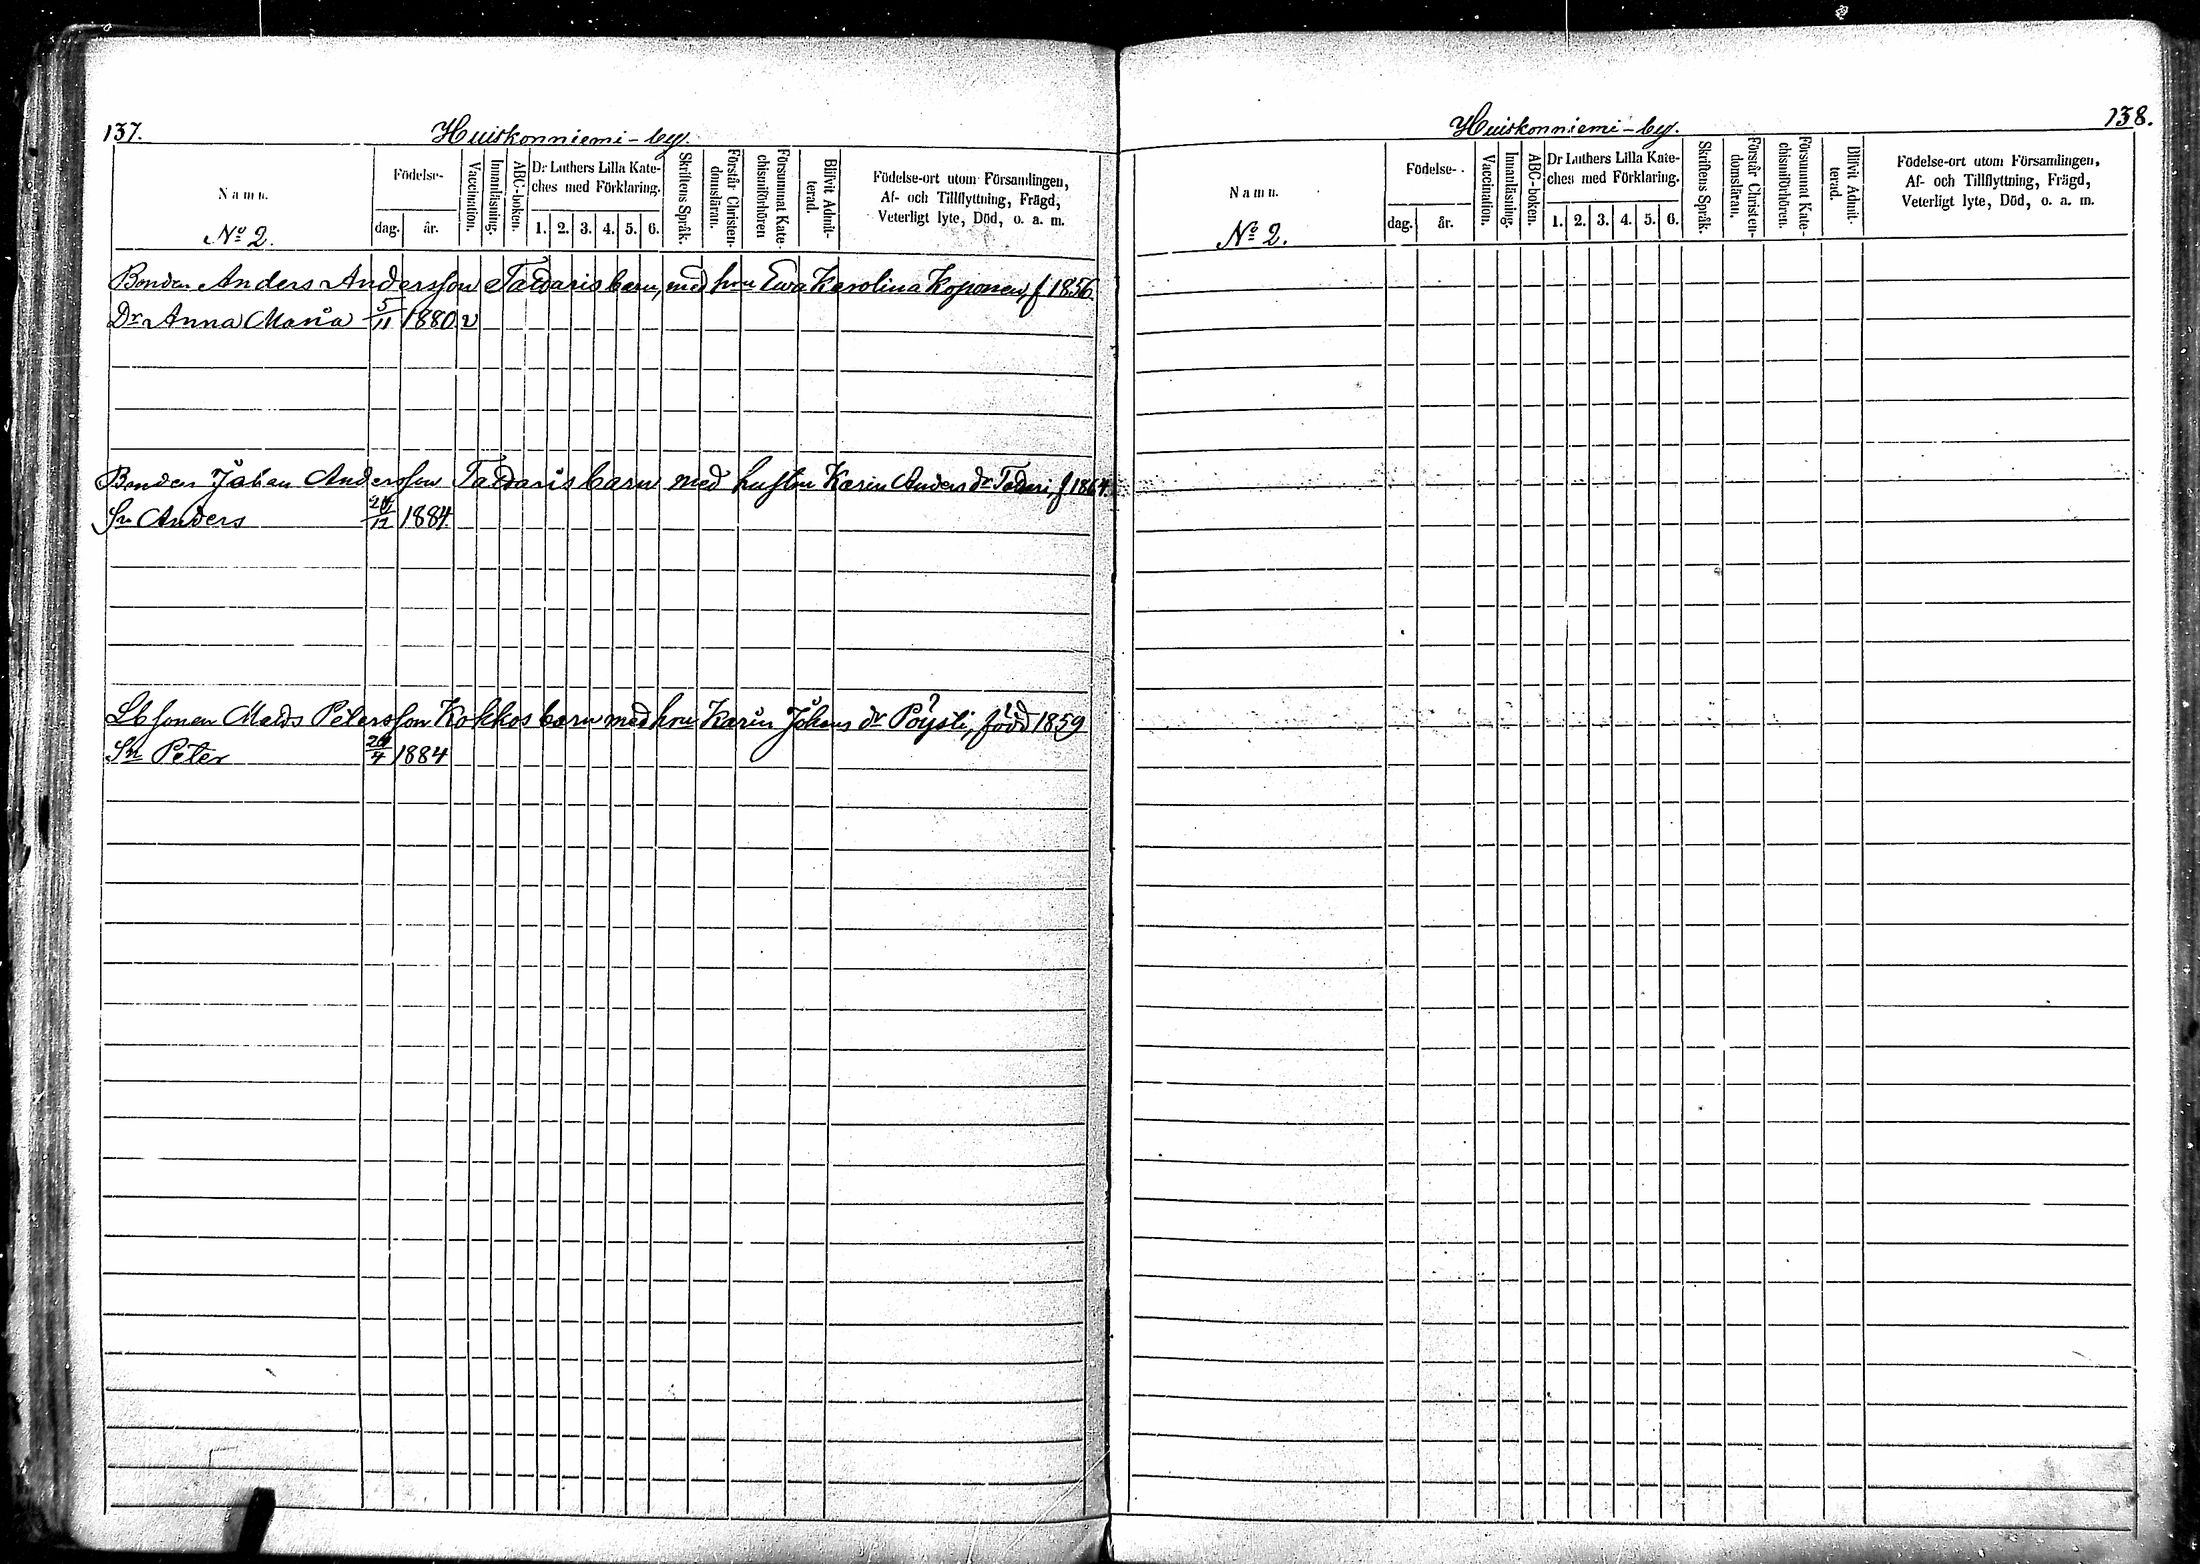 137.
Huiskonniemi-by.
Namn.
No 2.
Födelse-
dag.
år.
Vaccination.
Innanläsning.
ABC-boken.
Dr Luthers Lilla Kate-
ches med Förklaring.
1. 2. 3. 4. 5. 6.
Skriftens Språk.
Förstår Christen-
domsläran.
Försummat Kate-
chismiförhören
Blifvit Admit-
terad.
Födelse-ort utom Församlingen,
Af- och Tillflyttning, Frägd,
Veterligt lyte, Död, o. a. m.
Bonden Anders Andersson Taldaris barn, med hru Ewa Karolina Koponen, f 1856.
Dr Anna Maria 5/11 1880 v
Bonden Johan Andersson Taldaris barn med hustru Karin Anders dr f 1864.
Sn Anders /12 1884
Matts Petersson Kokkos barn med hru Karin Johans dr Pöysti, född 1859
Sn Peter 1884
138.
Huiskonniemi-by.
Namn.
No 2.
Födelse-
dag.
år.
Vaccination.
Innanläsning.
ABC-boken.
Dr Luthers Lilla Kate-
ches med Förklaring.
1. 2. 3. 4. 5. 6.
Skriftens Språk.
Förstår Christen-
domsläran.
Försummat Kate-
chismiförhören.
Blifvit Admit-
terad.
Födelse-ort utom Församlingen,
Af- och Tillflyttning, Frägd,
Veterligt lyte, Död, o. a. m.